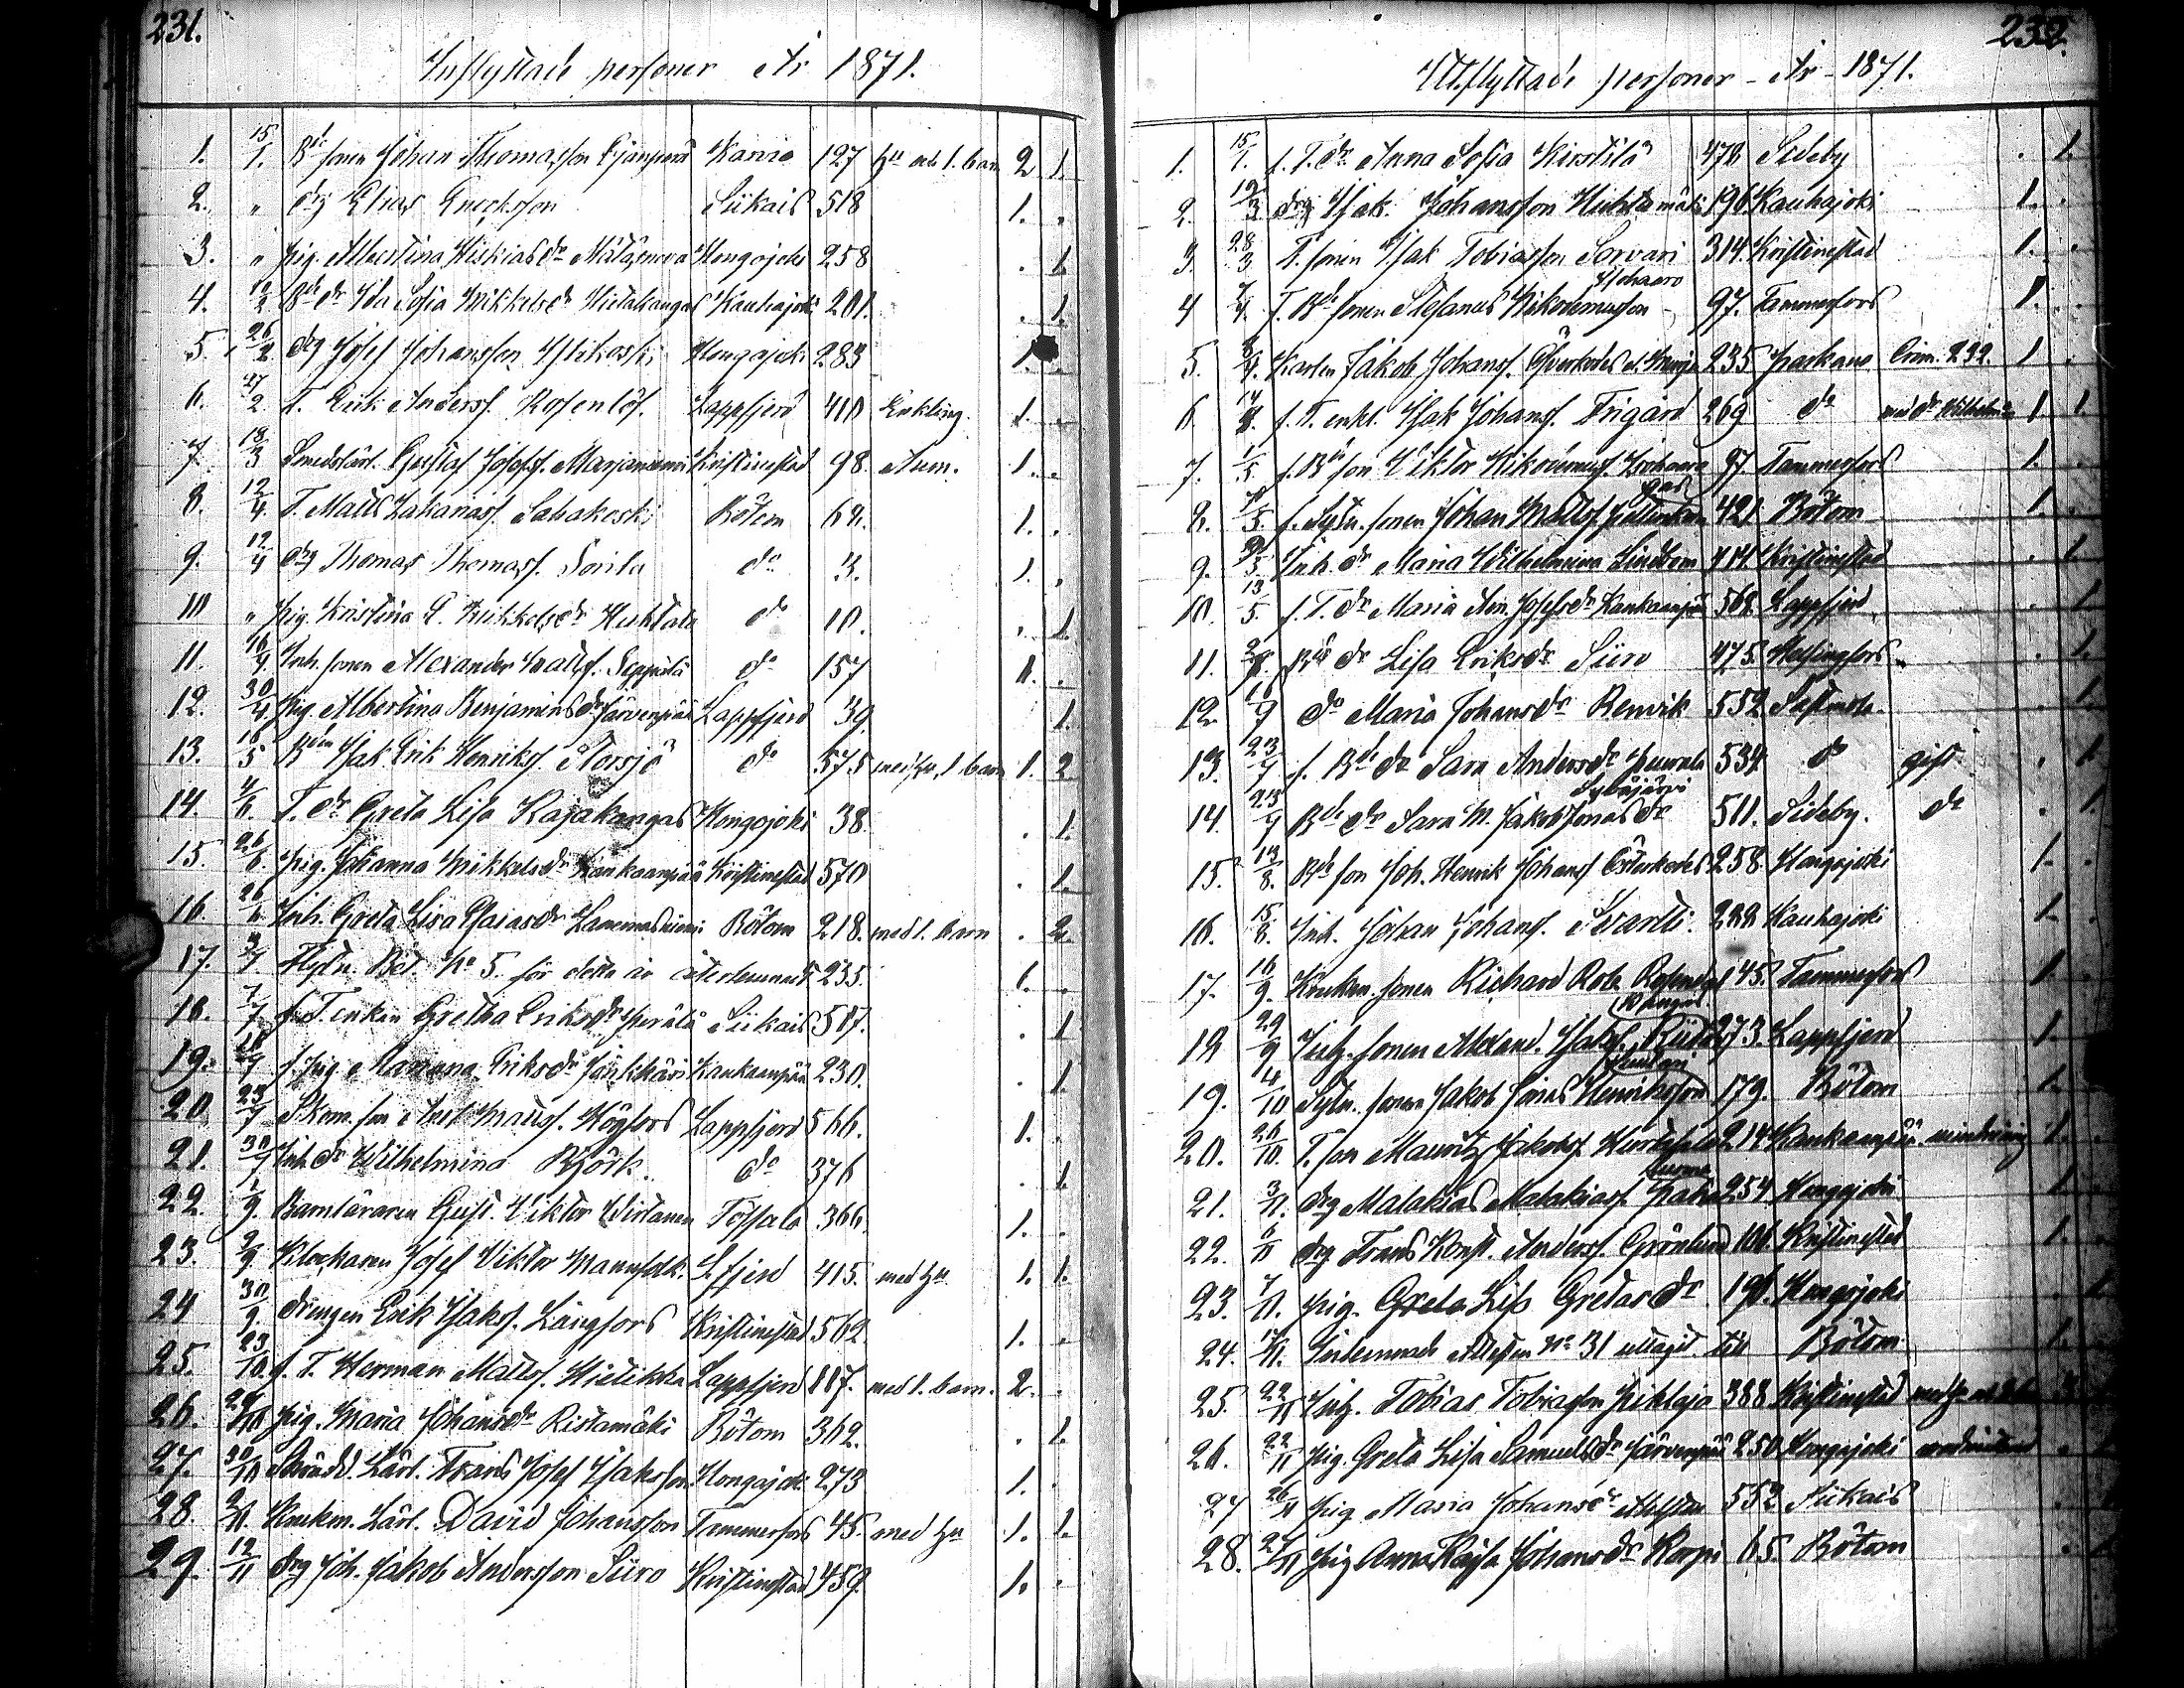 231.
Inflyttade personer År 1871.
1. 15/1. Bd sonen Johan Thomasson Kauvia 127 hu och 1. barn 2 1.
2. " drg Elias Enocksson Siikais 518 1. .
3. " pig. Albertina Hiskiasdr Hongojoki 258 . 1.
4. 12/2 Bd dr Ida Sofia Mikkelsdr Hietakangas Kauhajoki 201. . 1.
5. 26/2 drg Josef Johansson Ylikoski Hongojoki 283 1.
6. 27/2. T. Erik Andersf. Rosenlöf. Lappfjerd 410 Enkling. 1. .
7. 13/3 Smedslärl. Gustaf Josefsf. Marjaniemi Kristinestad 98. Anm. 1. .
8. 12/4. T. Matts Zakariasf. Sahakoski Bötom 62. 1. .
9. 12/4 drg Thomas Thomasf. Sorila do 3. 1. .
10 " pig. Kristina E. Mikkelsdr Huhtala do 10. . 1.
11. 16/4. Inh. sonen Alexander Mattsf. Seppälä do 157 1. .
12. 30/4. pig. Albertina Benjaminsdr Järvenpää Lappfjerd 39. 1.
13. 16/5 Bden Isak Erik Henriksf. Storsjö do 575 med hu, 1 barn 1. 2
14. 4/6. T. dr Greta Lisa Rajakangas Hongojoki 38. . 1.
15. 26/6. pig. Johanna Mikkelsdr Kankaanpää Kristinestad 570 . 1.
16. 26/6 Inh. Greta Lisa Esaiasdr Lammasniemi Bötom 218. med 1. barn . 2.
17. 3/7. Flyttn. Bet. No 5. för detta år återlemnadt 235. 1. .
18. 7/7 f. T. enkan Gretha Eriksdr Perälä Siikais 517. . 1
19. 18/7 f. pig Marianna Eriksdr Kankaanpää 230. . 1.
20. 23/7 Skom. son Anit Mattsf. Högfors Lappfjerd 566. 1. .
21. 30/7 Inh. dr Wilhelmina Björk. do 376 . 1.
22. 1/9. Barnläraren Gust. Viktor Virtanen Töfsala 366. 1. .
23. 2/9. Klockaren Josef Viktor Mannfolk. L. fjerd 415. med hu 1. 1.
24 30/9. drengen Erik Isaksf. Långfors Kristinestad 562. 1. .
25. 23/10 f. T. Herman Mattsf. Hietikka Lappfjerd 117. med 1. barn. 2. .
26. 29/10 pig. Maria Johansdr Ristamäki Bötom 362. . 1.
27. 30/10 Skrädd. Lärl. Frans Josef Isaksson Hongojoki 273 1. .
28. 2/11. Krukm. Lärl. David Johansson Tammerfors 45. med hu 1. 1.
29. 12/11 drg Joh. Jakob Andersson Siiro Kristinestad 459. 1. .
232.
Utflyttade personer - År - 1871.
1. 15/1. f. T. dr Anna Sofia Kirstilä 472 Sideby . 1.
2. 19/3. drg Isak Johansson Huhtamäki 196. Kauhajoki 1. .
3. 28/3 T. sonen Isak Tobiasson Sorvari 314. Kristinestad 1. .
4 7/4. f. Bd sonen Stefanus Nikodemusson 97. Tammerfors 1. .
5. 8/4. Karlen Jakob Johansf. 235 Parkano 1. .
6. f. T. enkl. Isak Johansf. Frigård 269 do med dr Wilhelmina 1. 1.
7. 1/5. f. Bd son Viktor Nikodemusf. 97 Tammerfors 1. .
8. f. sonen Johan Mattsf. 421 Bötom 1. .
9. Inh. dr Maria Wilhelmina Lindbom 414. Kristinestad . 1.
10. 13/5. f. T. dr Maria Josefsdr Kankaanpää 568. Lappfjerd . 1.
11. Bd dr Lisa Eriksdr Siiro 475. Helsingfors . 1.
12. do Maria Johansdr Renvik 552. Sastmola. . 1.
13. 23/7 f. Bd dr Sara Andersdr 534. do gift . 1.
14. 23/7 Bd dr Sara M. Jakob Jonasdr 511. Sideby. do . 1.
15. 13/8. Bd son Joh. Henrik Johansf. 258. Hongojoki 1. .
16. 15/8. Inh. Johan Johansf. Svartti. 222 Kauhajoki 1. .
17. 16/9. Krukm. sonen Richard Rob. Rosendal 45. Tammerfors 1. .
18 29/9 sonen Alexand. Isaksf. 273. Lappfjerd 1. .
19. 4/10 sonen Jakob Jonas Henriksson 179. Bötom 1. .
20. 26/10. T. son Mauritz Jakobsf. 214 Kankaanpää 1. .
21. 3/11. drg Malakias Malakiasf. 254 Hongojoki 1. .
22. 6/11 drg Frans Konst. Andersf. Grönlund 101. Kristinestad 1. .
23. 7/11. pig. Greta Lisa Gretasdr 191. Hongojoki . 1.
24. 17/11. No 31 till Bötom 1. .
25. 22/11 Inh. Tobias Tobiasson 388. Kristinestad
26. 22/11 pig. Greta Lisa Samuelsdr Järvenpää 250. Hongojoki . 1.
27 26/11 pig Maria Johansdr 552 Siikais . 1.
28. 27/11 pig Anna Kajsa Johansdr Korpi 65. Bötom . 1.